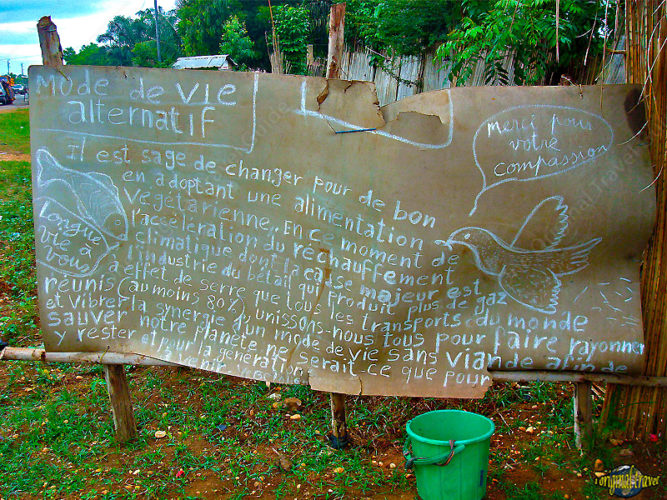 Mode de vie
alternatif
Merci pour
votre
compassion
Longue
vie à
vous
Il est sage de changer pour de bon
en adoptant une alimentation
végétarienne. En ce moment de
l'accélération du réchauffement
climatique dont la cause majeur est
l'industrie du bétail qui produit plus de gaz
à effet de serre que tous les transports du monde
réunis (au moins 80%), unissons-nous tous pour faire rayonner
et vibrer la synergie d'un mode de vie sans viande afin de
sauver notre planète ne serait-ce que pour
y rester et pour la génération
à venir
original travel